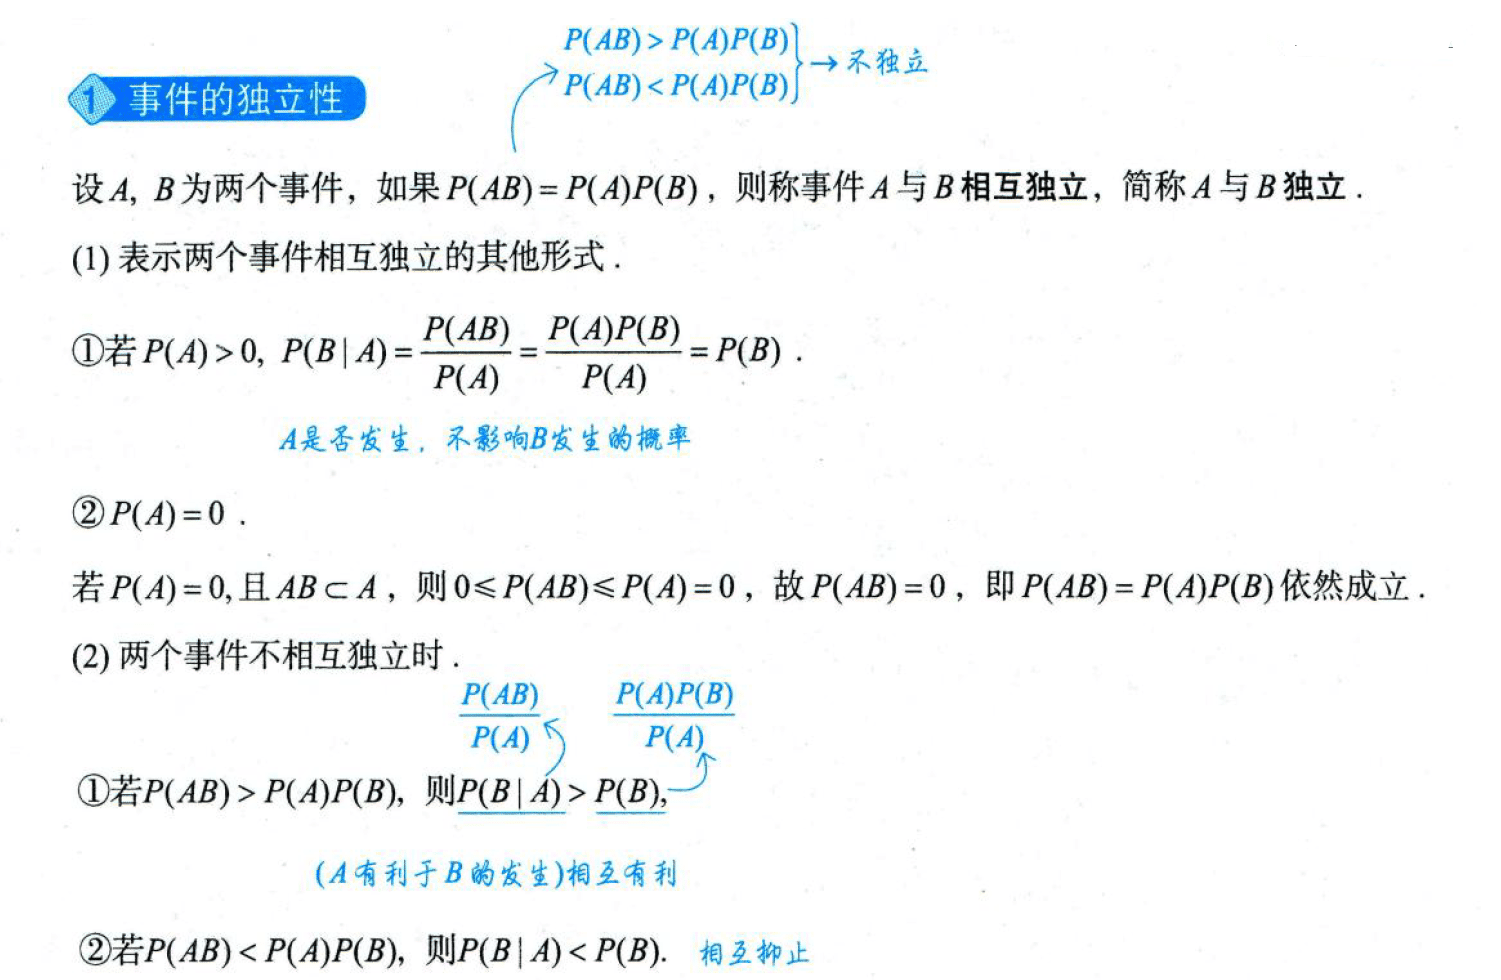 P(AB)>P(A)P(B)
P(AB)<P(A)P(B)} → 不独立
1 事件的独立性
设A, B为两个事件，如果P(AB)=P(A)P(B)，则称事件A与B相互独立，简称A与B独立.
(1) 表示两个事件相互独立的其他形式.
①若P(A)>0, P(B|A)=P(AB)/P(A)=P(A)P(B)/P(A)=P(B).
A是否发生，不影响B发生的概率
②P(A)=0.
若P(A)=0,且AB⊂A，则0≤P(AB)≤P(A)=0，故P(AB)=0，即P(AB)=P(A)P(B)依然成立.
(2) 两个事件不相互独立时.
P(AB)/P(A) P(A)P(B)/P(A)
①若P(AB)>P(A)P(B), 则P(B|A)>P(B),
(A有利于B的发生)相互有利
②若P(AB)<P(A)P(B), 则P(B|A)<P(B). 相互抑止